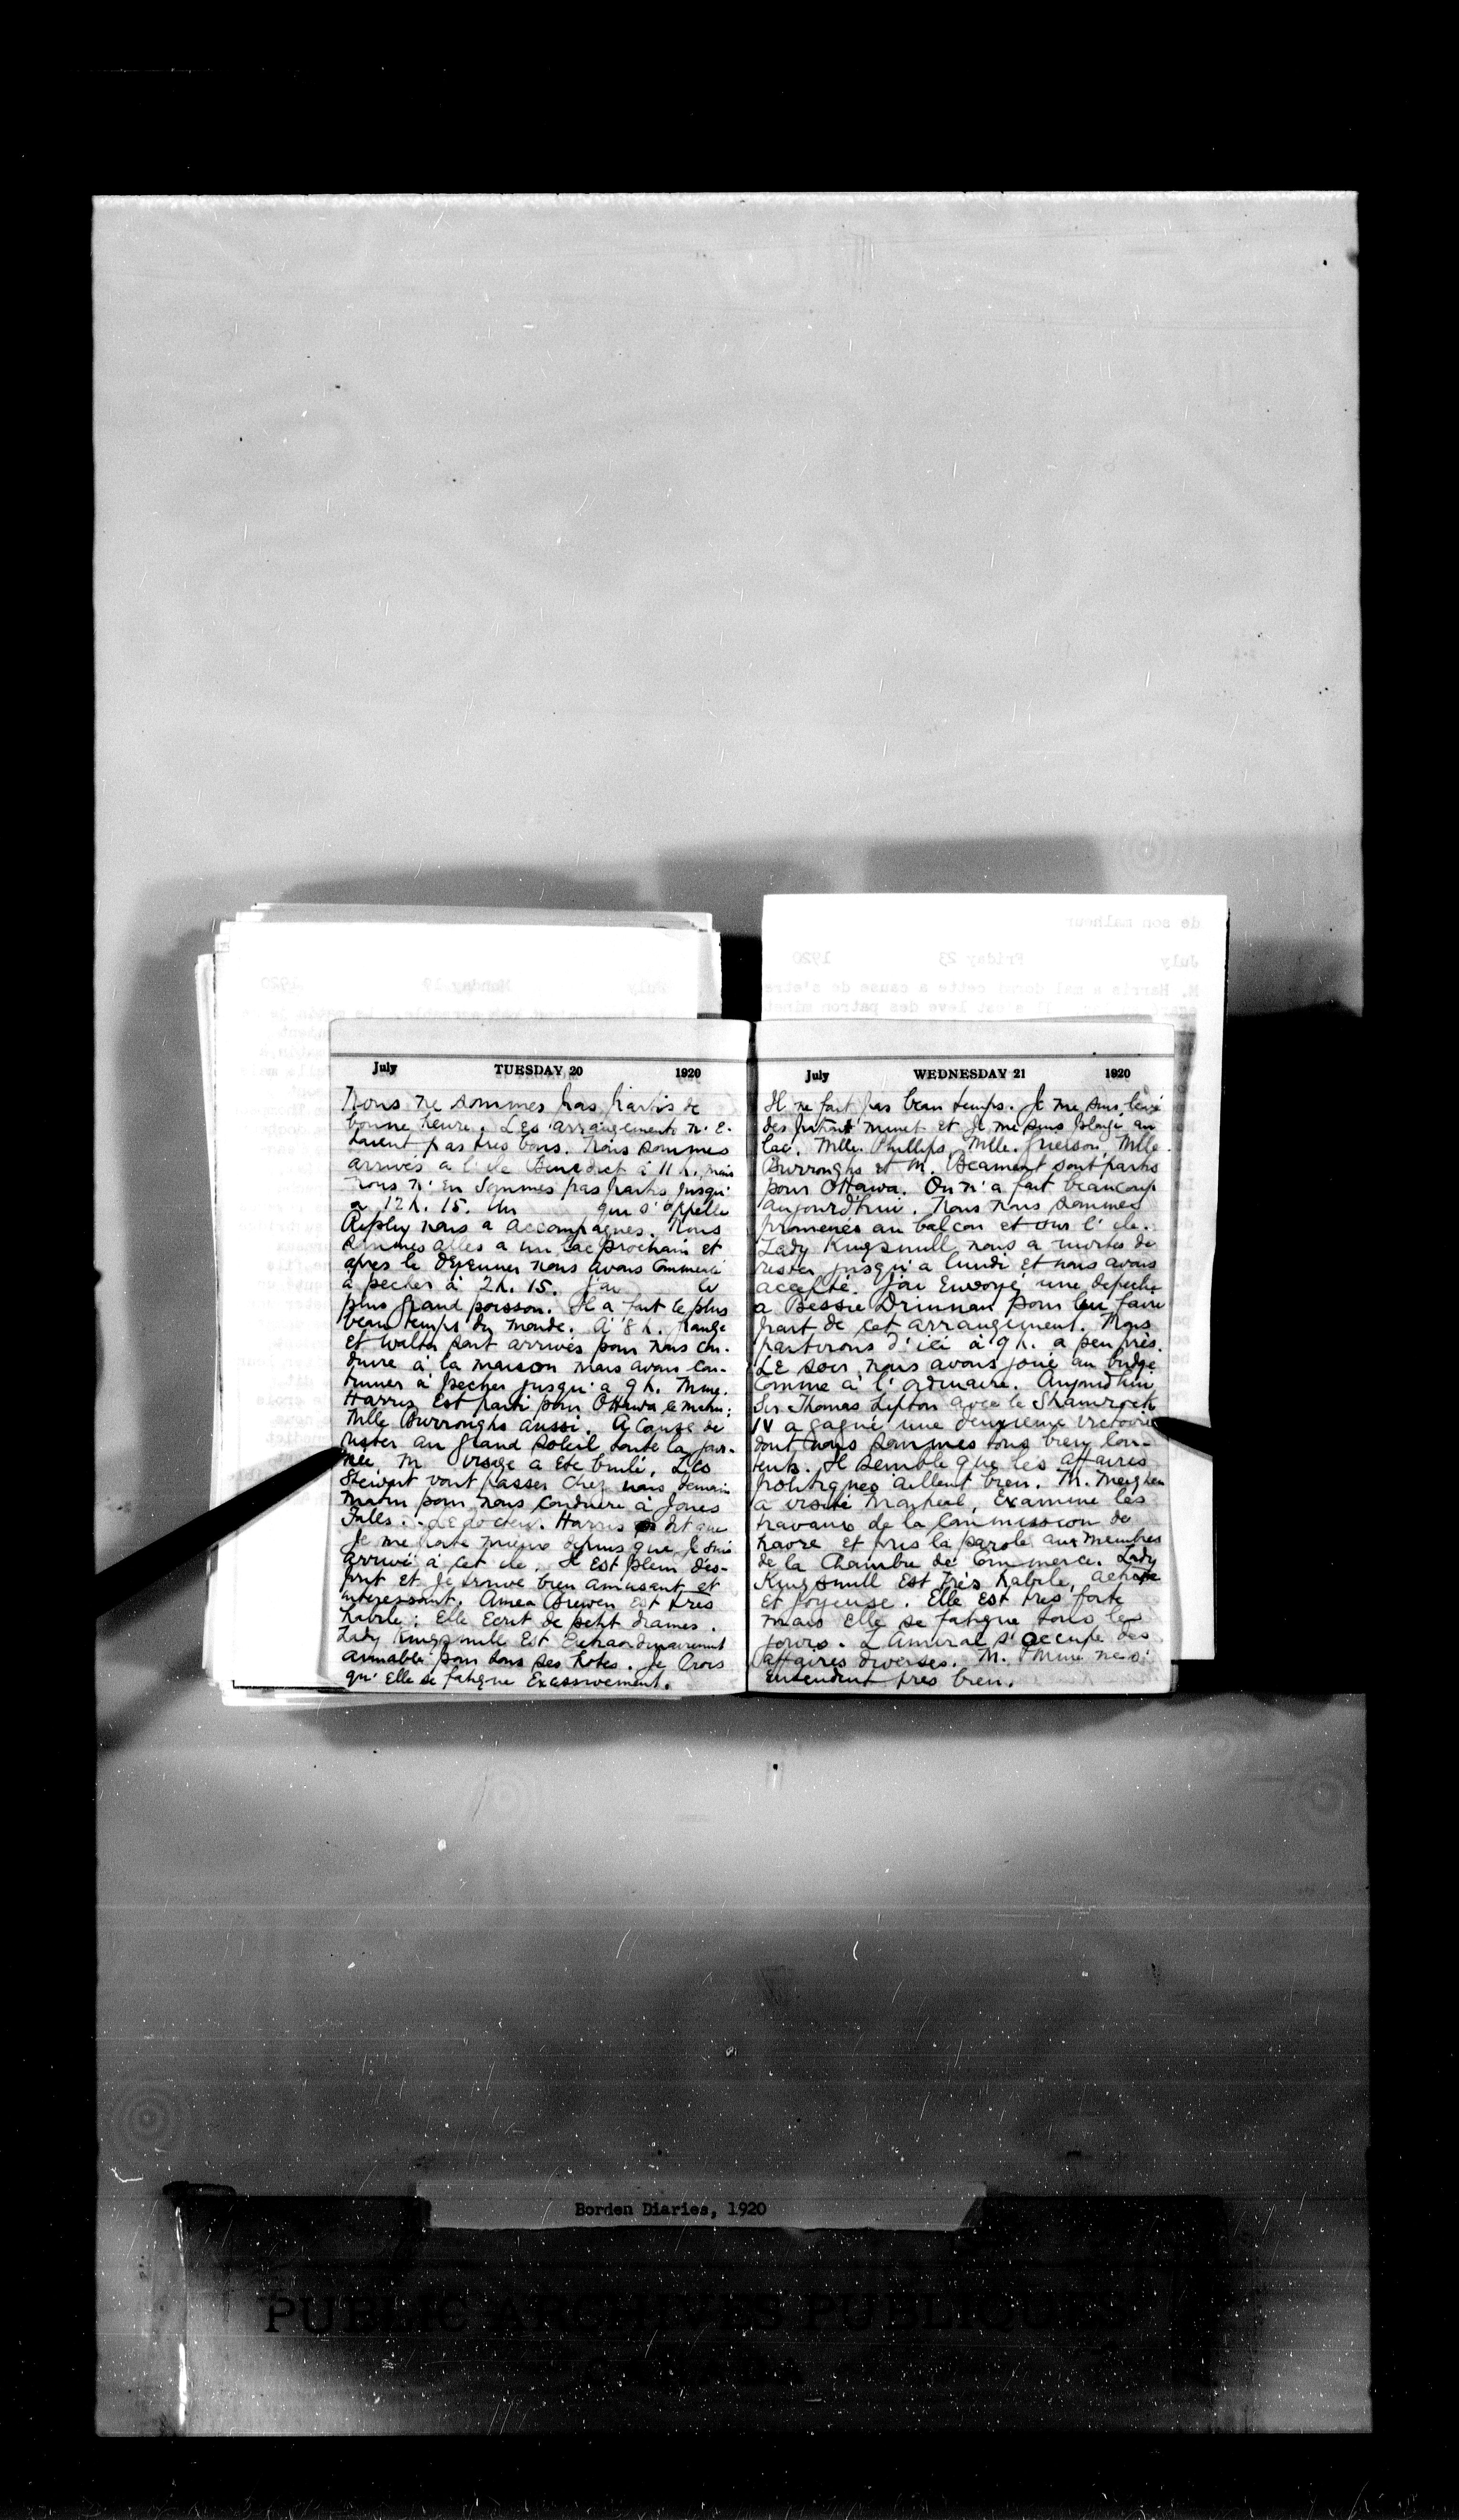 de son malheur
July Friday 23 1920
M. Harris a mal dormi cette a cause de s'etre
s'est leve des patron minet
July Monday 19 1920
July TUESDAY 20 1920
Nous ne sommes pas partis de
bonne heure. Les arrangements n'é-
taient pas tres bons. Nous sommes
arrivés a l'ile Benedict à 11 h. mais
nous n'en sommes pas partis jusqu'
a 12 h. 15. Un qui s'appelle
nous a accompagnes. Nous
sommes alles a un lac prochain et
apres le dejeuner nous avons commencé
à pecher à 2 h. 15. J'ai le
plus grand poisson. Il a fait le plus
beau temps du monde. A 8 h.
et Walter sont arrivés pour nous con-
duire à la maison mais avons con-
tinuer à pecher jusqu'a 9 h. Mme.
Harris est parti pour Ottawa le matin;
Mlle Burroughs aussi. A cause de
rester au grand soleil toute la jour-
née, m visage a ete brulé. Les
Stewart vont passer chez nous demain
matin pour nous conduire à Jones
Falls. Le docteur Harris dit que
je me porte mieux depuis que je suis
arrivé à cet ile. Il est plein d'es-
prit et je trouve bien amusant et
interessant. Amea Brewen est tres
habile; Elle ecrit de petit drames.
Lady Kingsmill est extraordinairement
aimable pour tous ses hotes. Je crois
qu'elle se fatigue excessivement.
July WEDNESDAY 21 1920
Il ne fait pas beau temps. Je me suis levé
des patront minet et je me suis plongé au
lac. Mlle. Phillips, Mlle. Grierson, Mlle.
Burroughs et M. Beament sont partis
pour Ottawa. On n'a fait beaucoup
aujourd'hui. Nous nous sommes
promenés au balcon et sur l'ile.
Lady Kingsmill nous a invités de
rester jusqu'a lundi et nous avons
accepté. J'ai envoyé une depeche
a Bessie Drinnan pour lui faire
part de cet arrangement. Nous
partirons d'ici à 9 h. a peu près.
Le soir nous avons joué au bridge
comme à l'ordinaire. Aujourd'hui
Sir Thomas Lipton avec le Shamrock
IV a gagné une deuxieme victoire
dont nous sommes tous bien con-
tents. Il semble que les affaires
politiques aillent bien. M. Meighen
a visité Montreal, examine les
travaux de la Commission de
havre et pris la parole aux membres
de la Chambre de Commerce. Lady
Kingsmill est très habile, active
et joyeuse. Elle est tres forte
mais elle se fatigue tous les
jours. L'Amiral s'occupe des
affaires diverses. M. Mme ne s'
entendent pres bien.
Borden Diaries, 1920
PUBLIC ARCHIVES PUBLIQUES